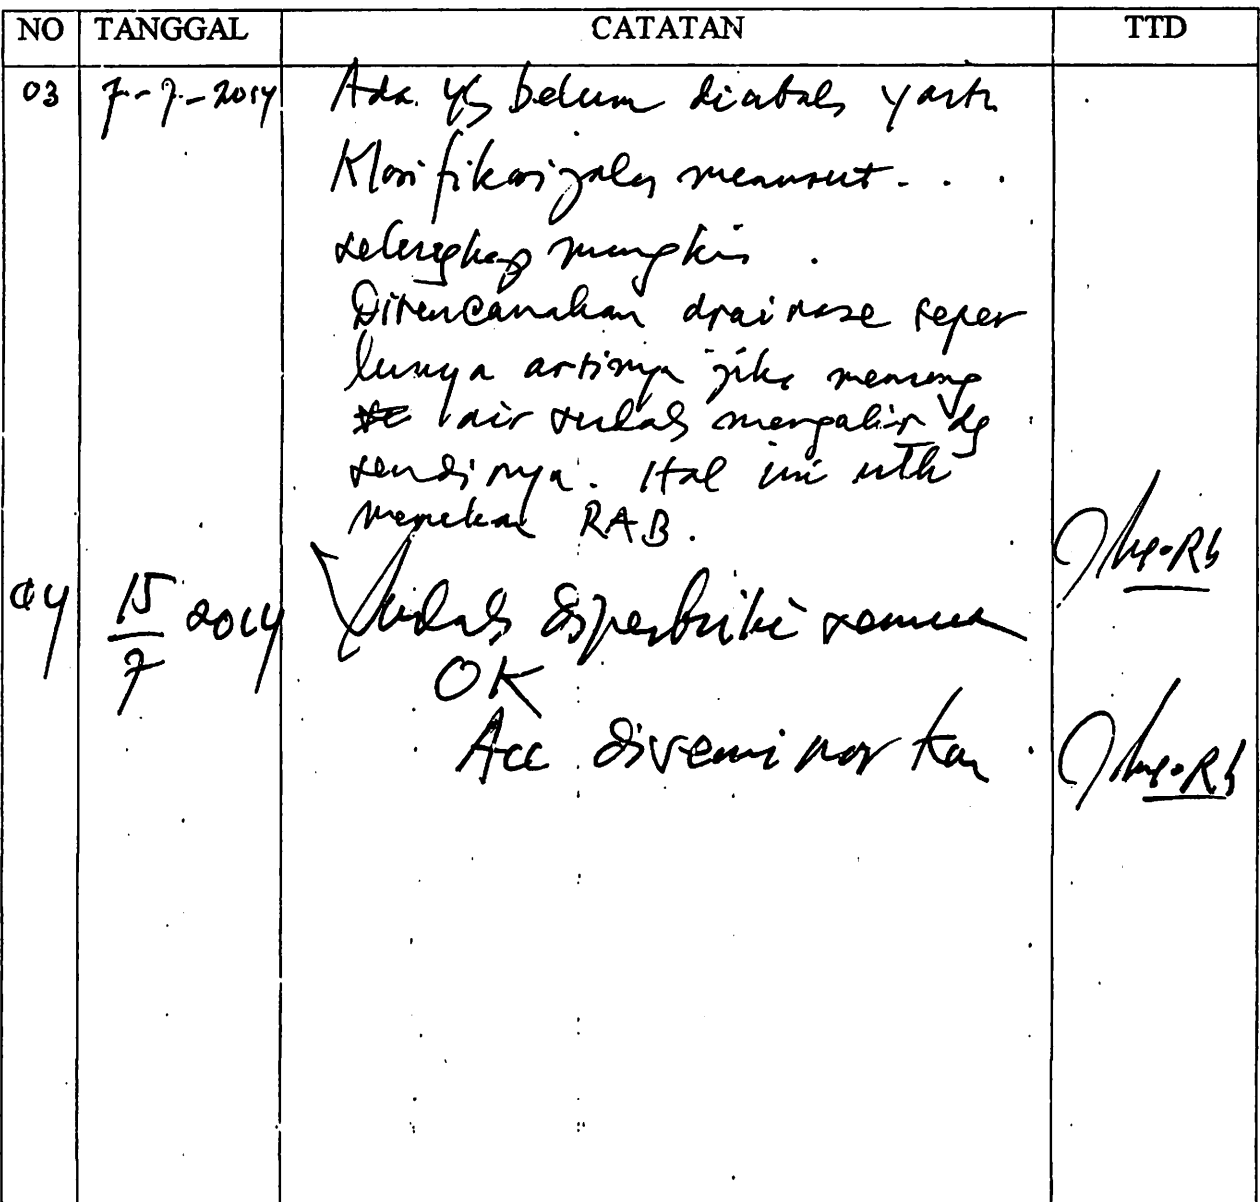 NO TANGGAL CATATAN TTD
03 7-7-2014 Ada yg belum diubah yaitu
Klasifikasi jalan menurut . . .
selengkap mungkin .
Direncanakan drainase seper
lunya artinya jika memang
air sudah mengalir dg
sendinya. Hal ini utk
menekan RAB.
04 15/7 2014 Sudah diperbaiki semua
OK
Acc diseminarkan